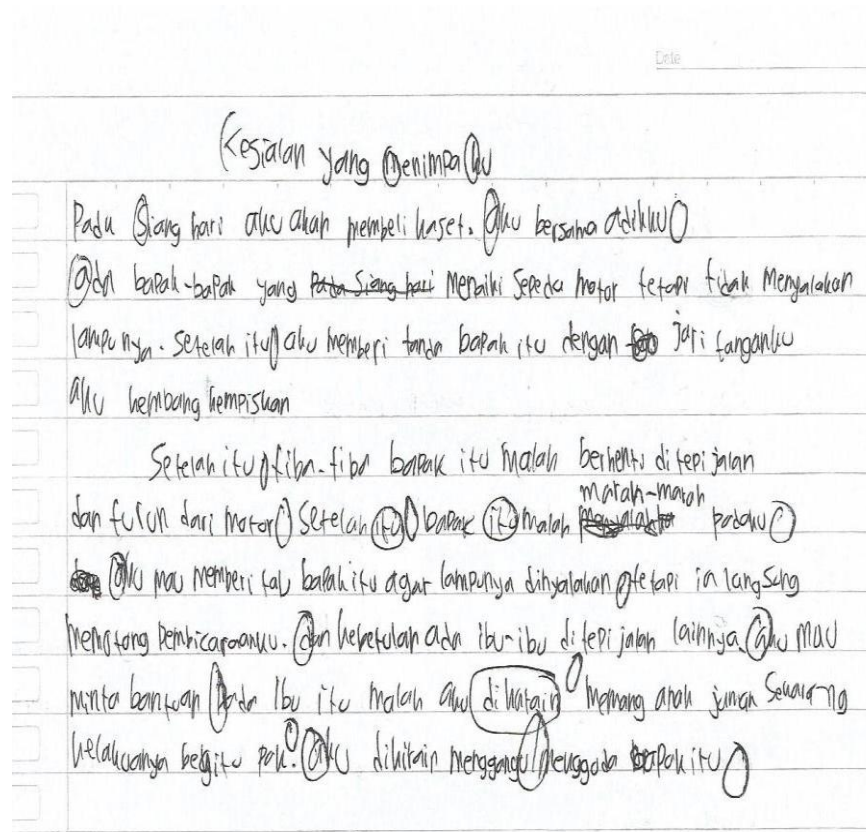 Date
Kesialan yang menimpa ku
Pada Siang hari aku akan membeli kaset. aku bersama adikku
ada bapak-bapak yang Pada Siang hari menaiki sepeda motor tetapi tidak menyalakan
lampunya. setelah itu aku memberi tanda bapak itu dengan jari tanganku
aku kembang kempiskan
Setelah itu tiba-tiba bapak itu malah berhenti di tepi jalan
marah-marah
dan turun dari motor setelah itu bapak itu malah padaku
aku mau memberi tau bapak itu agar lampunya dinyalakan tetapi ia langsung
memotong pembicaraanku. dan kebetulan ada ibu-ibu di tepi jalan lainnya. aku mau
minta bantuan pada Ibu itu malah aku dikatain memang anak jaman Sekara-ng
kelakuanya begitu pak. aku dikirain menggangu/menggoda bapak itu